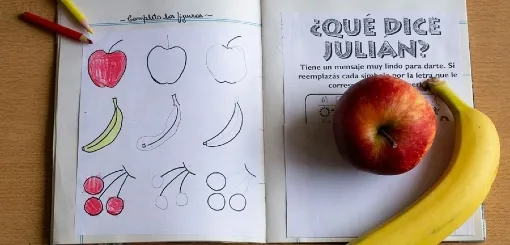 Completo las figuras
¿QUÉ DICE
JULIAN?
Tiene un mensaje muy lindo para darte. Si
reemplazas cada símbolo por la letra que le